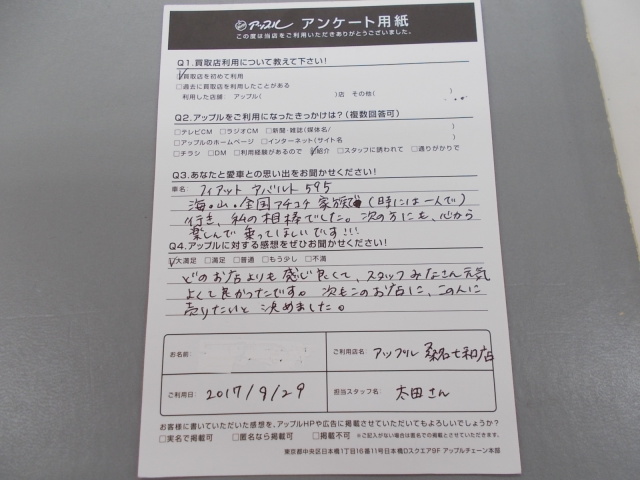 アップル アンケート用紙
この度は当店をご利用いただきありがとうございました。
Q1.買取店利用について教えて下さい!
☑買取店を初めて利用
□過去に買取店を利用したことがある
利用した店舗: アップル( )店 その他( )
Q2.アップルをご利用になったきっかけは?(複数回答可)
□テレビCM □ラジオCM □新聞・雑誌(媒体名/ )
□アップルのホームページ □インターネット(サイト名 )
□チラシ □DM □利用経験があるので ☑紹介 □スタッフに誘われて □通りがかりで
Q3.あなたと愛車との思い出をお聞かせください!
車名 フィアット アバルト595
海・山・全国アチコチ家族で(時には一人で)
行き、私の相棒でした。次の方にも、心から
楽しんで乗ってほしいです!!!
Q4.アップルに対する感想をぜひお聞かせください!
☑大満足 □満足 □普通 □もう少し □不満
どのお店よりも感じ良くて、スタッフみなさん元気
よくて良かったです。次もこのお店に、この人に
売りたいと決めました。
お名前
ご利用店名 アップル 桑名七和店
ご利用日 2017/9/29
担当スタッフ名 太田さん
お客様に書いていただいた感想を、アップルHPや広告に掲載させていただいてもよろしいでしょうか?
□実名で掲載可 □匿名なら掲載可 □掲載不可 ※ご記入がない場合は匿名での掲載とさせていただきます。
東京都中央区日本橋1丁目16番11号日本橋Dスクエア9F アップルチェーン本部